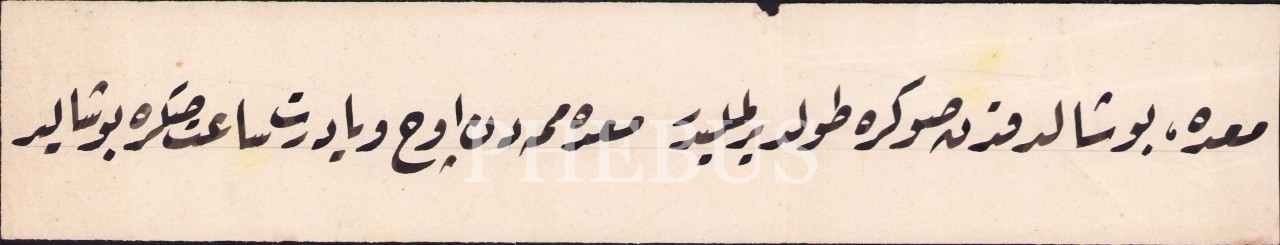 معده، بوشالدقدن صوكره طولديرلمليدر معده مزدن اوچ ويا درت ساعت صكره بوشالير
PHEBUS